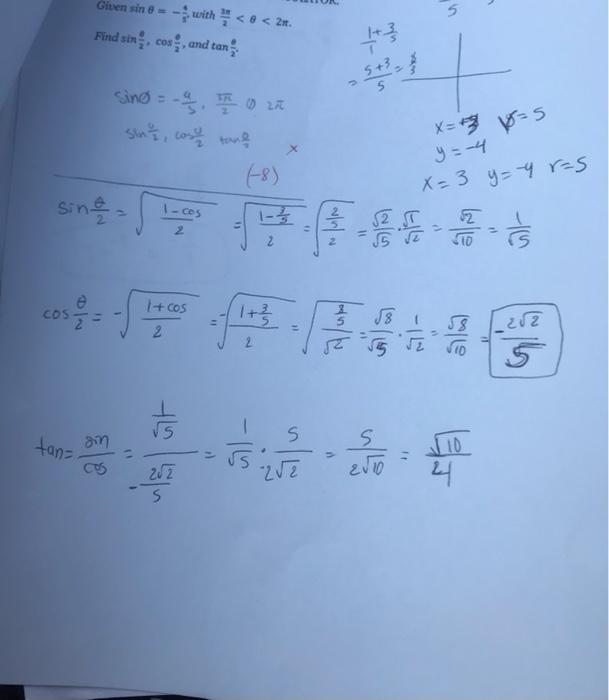 Given sin θ = -4/5 with 3π/2 < θ < 2π.
Find sin θ/2, cos θ/2, and tan θ/2.
5
1+3/5
1
= 5+3/5 = 8/5
sinθ = -4/5, 3π/2 θ 2π
sin θ/2, cos θ/2 tan θ/2
x
(-8)
x=3 r=5
y=-4
x=3 y=-4 r=5
sin θ/2 = √((1-cos)/2) = √((1-3/5)/2) = √((2/5)/2) = √2/√5 · √1/√2 = √2/√10 = 1/√5
cos θ/2 = -√((1+cos)/2) = -√((1+3/5)/2) = √((8/5)/√2) = √8/√5 · 1/√2 = √8/√10 = -2√2/5
tan = sin/cos = (1/√5)/(-2√2/5) = 1/√5 · 5/-2√2 = 5/2√10 = √10/4